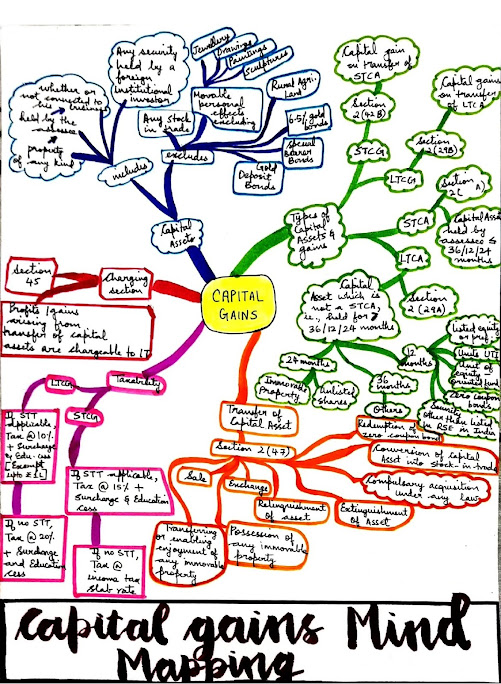 Jewellery
Drawings
Paintings
Sculptures
Any security
held by a
foreign
institutional
investor
whether or
not connected to
business
held by the
assessee
property
of any kind
includes
Any stock
in trade
Movable
personal
effects
excluding
Rural Agri.
Land
6.5% gold
bonds
Special
Bearer
Bonds
Gold
Deposit
Bonds
excludes
Capital
Assets
Capital gain
on transfer of
STCA
Section
2(42B)
STCG
Capital gains
on transfer
of LTCA
Section
2(29B)
LTCG
Types of
Capital
Assets &
gains
STCA
Section
Capital Asset
held by
assessee ≤
36/12/24
months
LTCA
Section
2(29A)
Capital
Asset which is
not a STCA,
i.e., held for >
36/12/24 months
24 months
Immovable
Property
Unlisted
shares
36
months
Others
12
months
Listed equity
or pref.
Units UTI
Unit of
equity
oriented fund
Zero coupon
bonds
Security
other than listed
in RSE in India
CAPITAL
GAINS
Charging
section
Section
45
Profits/gains
arising from
transfer of capital
assets are chargeable to IT
Taxability
LTCG
If STT
applicable,
Tax @ 10%
+ Surcharge
& Edu. cess
[Exempt
upto ₹1L]
If no STT,
Tax @ 20%
+ Surcharge
and Education
cess
STCG
If STT applicable,
Tax @ 15% +
Surcharge & Education
cess
If no STT,
Tax @
income tax
slab rate
Transfer of
Capital Asset
Section 2(47)
Sale
Exchange
Relinquishment
of asset
Extinguishment
of Asset
Compulsory acquisition
under any law
Conversion of Capital
Asset into stock-in-trade
Redemption of
zero coupon bond
Transferring
or enabling
enjoyment of
any immovable
property
Possession of
any immovable
property
Capital gains Mind
Mapping